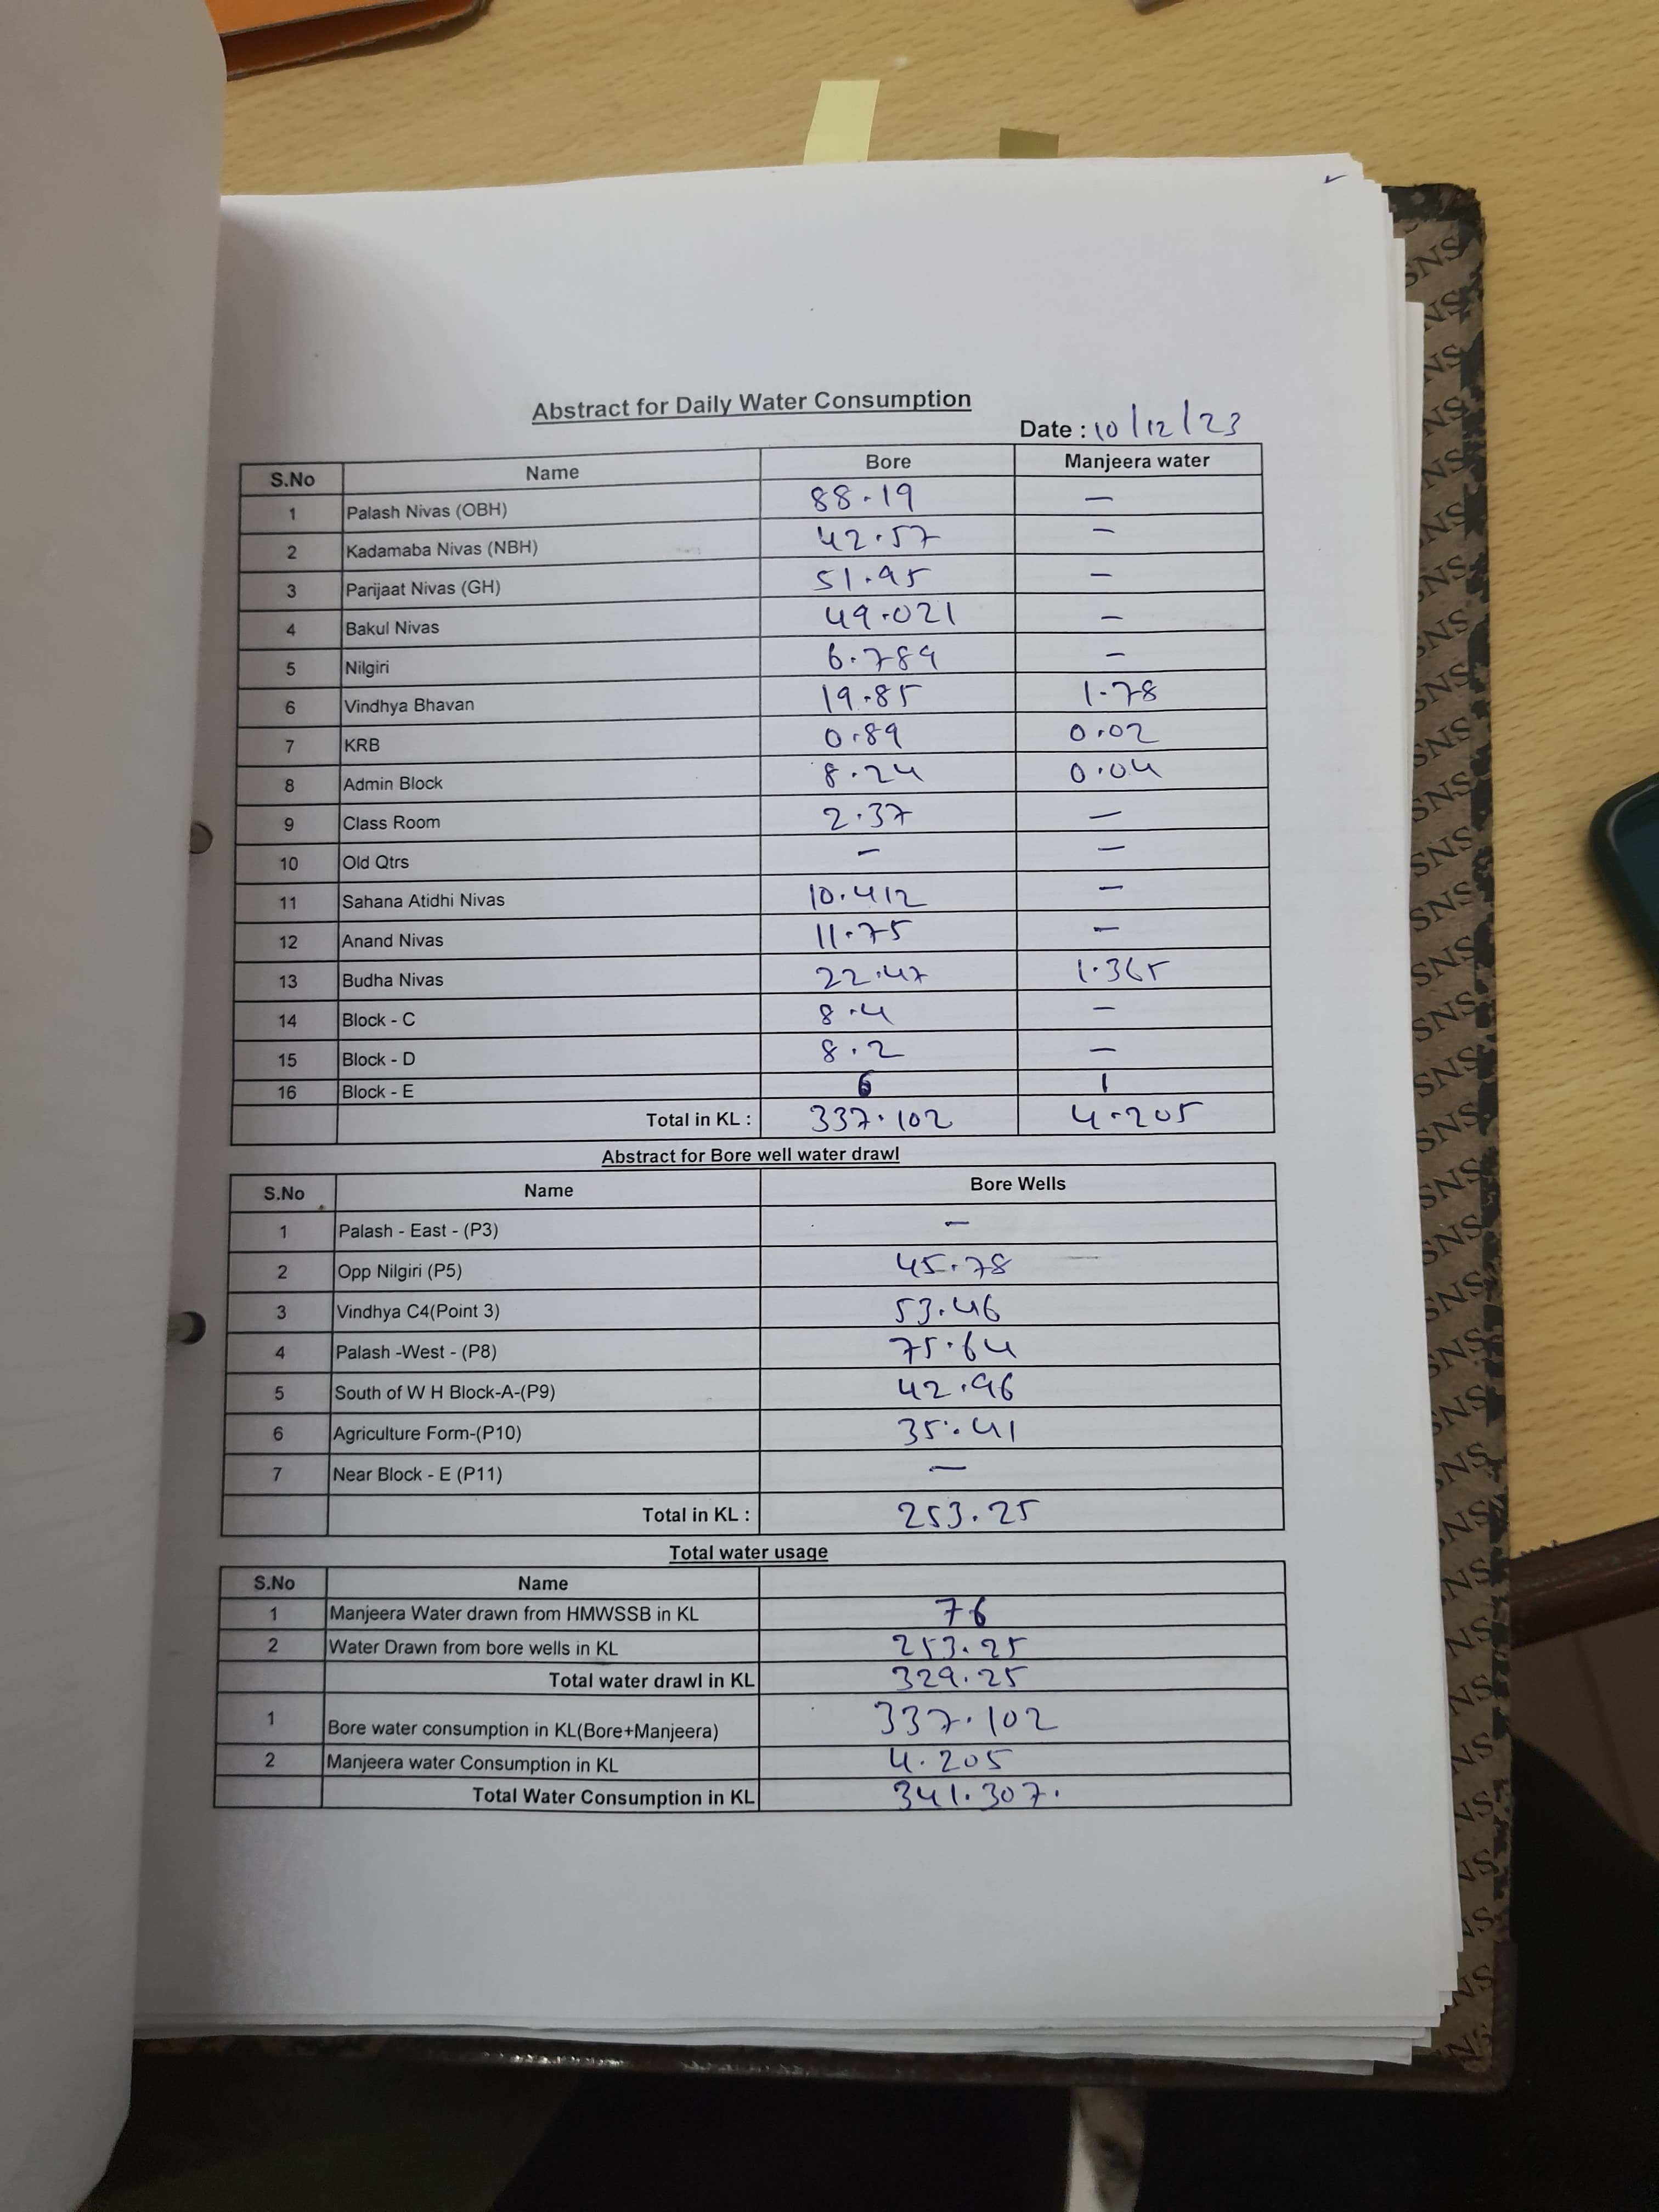 Abstract for Daily Water Consumption
Date : 10/12/23
S.No Name Bore Manjeera water
1 Palash Nivas (OBH) 88.19 —
2 Kadamaba Nivas (NBH) 42.57 —
3 Parijaat Nivas (GH) 51.95 —
4 Bakul Nivas 49.021 —
5 Nilgiri 6.789 —
6 Vindhya Bhavan 19.85 1.78
7 KRB 0.89 0.02
8 Admin Block 8.24 0.04
9 Class Room 2.37 —
10 Old Qtrs — —
11 Sahana Atidhi Nivas 10.412 —
12 Anand Nivas 11.75 —
13 Budha Nivas 22.47 1.365
14 Block - C 8.4 —
15 Block - D 8.2 —
16 Block - E 6 1
Total in KL : 337.102 4.205
Abstract for Bore well water drawl
S.No Name Bore Wells
1 Palash - East - (P3) —
2 Opp Nilgiri (P5) 45.78
3 Vindhya C4(Point 3) 53.46
4 Palash -West - (P8) 75.64
5 South of W H Block-A-(P9) 42.96
6 Agriculture Form-(P10) 35.41
7 Near Block - E (P11) —
Total in KL : 253.25
Total water usage
S.No Name
1 Manjeera Water drawn from HMWSSB in KL 76
2 Water Drawn from bore wells in KL 253.25
Total water drawl in KL 329.25
1 Bore water consumption in KL(Bore+Manjeera) 337.102
2 Manjeera water Consumption in KL 4.205
Total Water Consumption in KL 341.307.